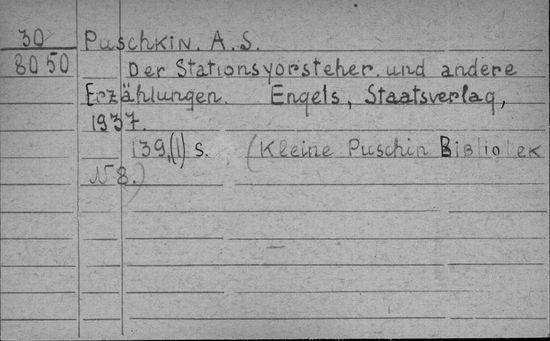 30 Puschkin. A.S.
8050 Der Stationsvorsteher. und andere
Erzählungen. Engels, Staatsverlag,
1937.
139,(1) S. (Kleine Puschin Bibliotek
N 8.)